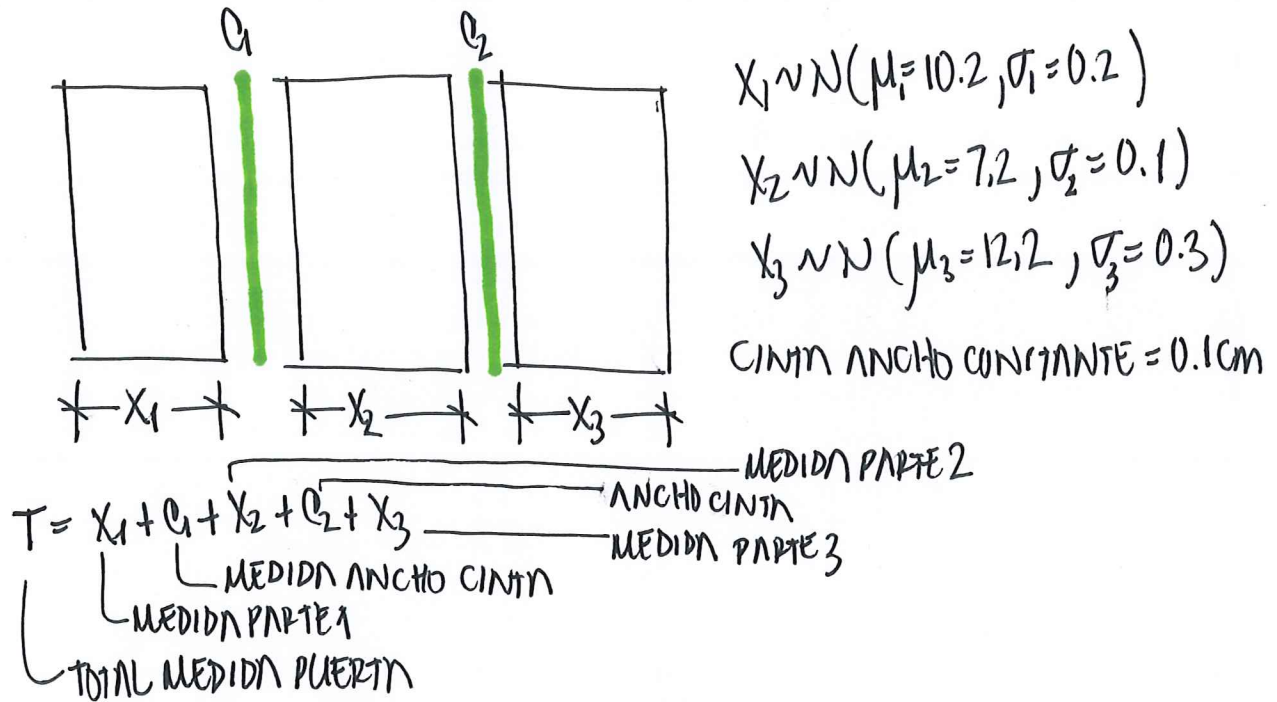 C1 C2
X1 ~ N(μ1=10.2, σ1=0.2)
X2 ~ N(μ2=7,2, σ2=0.1)
X3 ~ N(μ3=12,2, σ3=0.3)
CINTA ANCHO CONSTANTE = 0.1cm
X1 X2 X3
MEDIDA PARTE 2
ANCHO CINTA
T = X1 + C1 + X2 + C2 + X3
MEDIDA PARTE 3
MEDIDA ANCHO CINTA
MEDIDA PARTE 1
TOTAL MEDIDA PUERTA